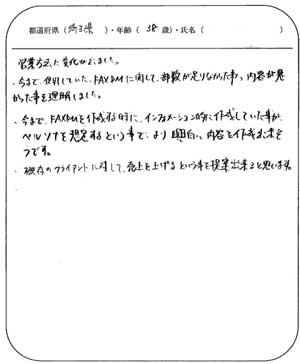 都道府県（埼玉県）・年齢（38歳）・氏名（　　　　）
営業方法に変化がでました。
・今まで、使用していた、FAXDMに関して、部数が足りなかった事、内容が悪
かった事を理解しました。
・今まで、FAXDMを作成する時に、インフォメーション的に作成していた事が、
ペルソナを想定するという事で、より面白い内容を作成出来そ
うです。
・既存のクライアントに対して、売上を上げるという事を提案出来ると思います。